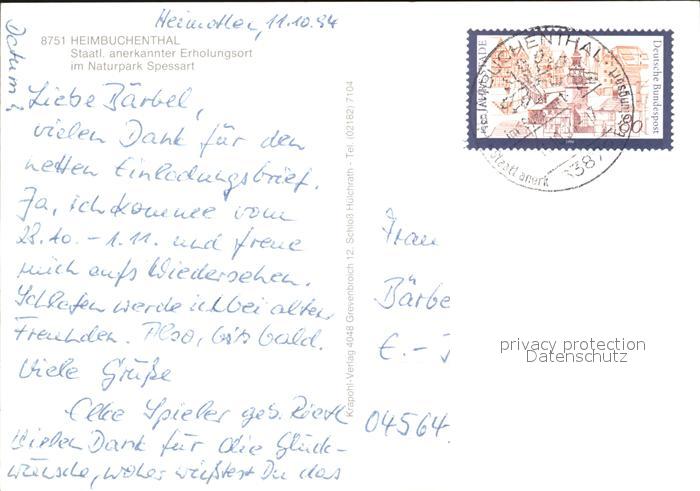 Heimathen, 11.10.94
Datum?
8751 HEIMBUCHENTHAL
Staatl. anerkannter Erholungsort
im Naturpark Spessart
Liebe Bärbel,
vielen Dank für den
netten Einladungsbrief.
Ja, ich komme vom
28.10. - 1.11. und freue
mich aufs Wiedersehen.
Schlafen werde ich bei alten
Freunden. Also, bis bald.
Viele Grüße
Elke Spieler geb.
Vielen Dank für die Glück-
wünsche, woher wußtest Du das
Krapohl-Verlag 4048 Grevenbroich 12, Schloß Hülchrath - Tel. (02182) 7104
HEIMBUCHENTHAL
Staatl anerk
Deutsche Bundespost
Frau
Bärbe
E.-J
04564
privacy protection
Datenschutz